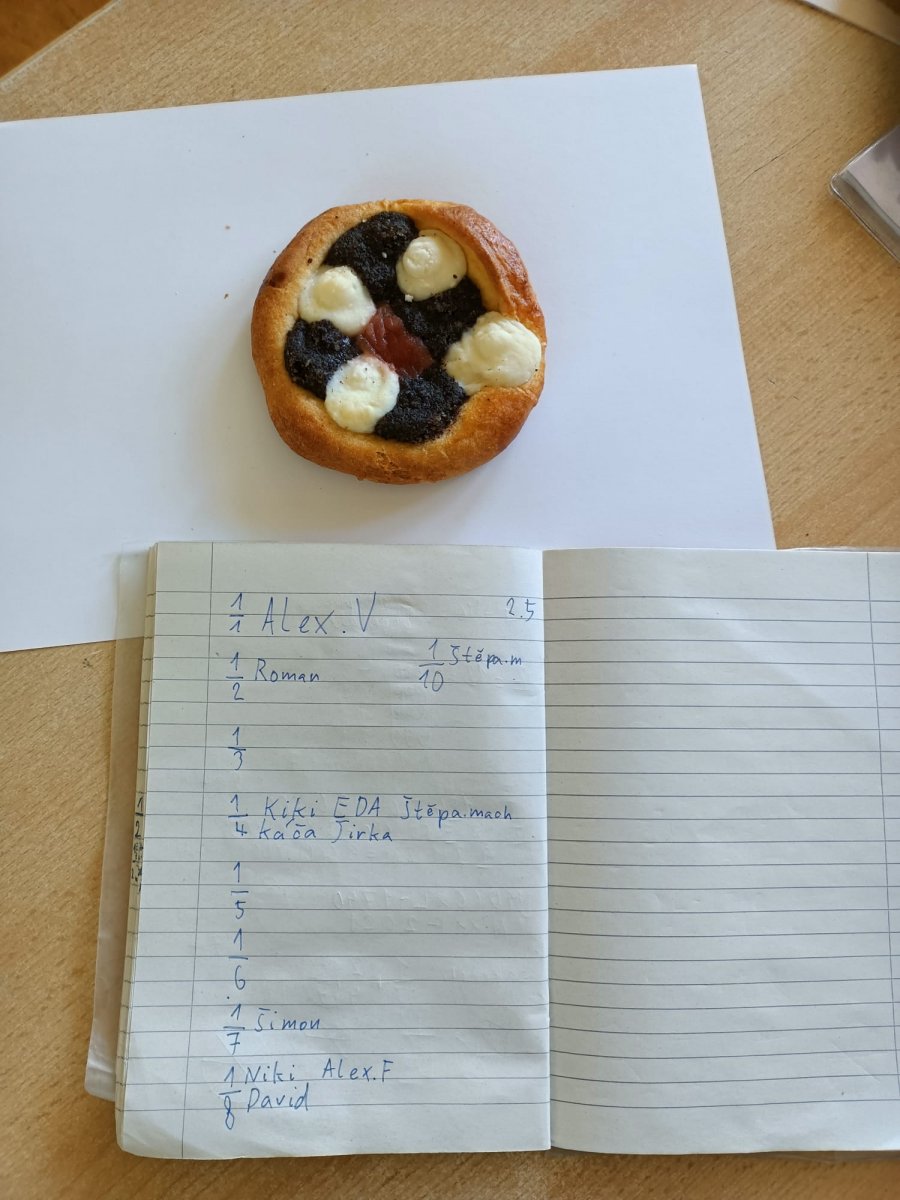 1/1 Alex.V 2.5
1/2 Roman 1/10 Štěpa.m
1/3
1/4 Kiki EDA Štěpa.mach
Káča Jirka
1/5
1/6
1/7 Šimon
1/8 Niki Alex.F
David